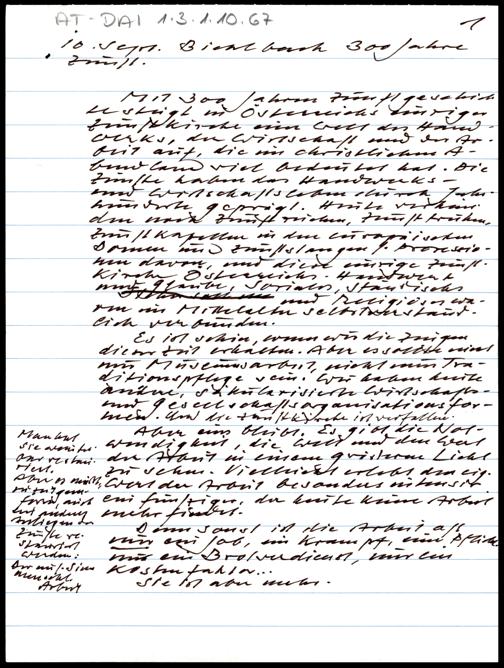 AT-DAI 1.3.1.10.67
1
10. Sept. Bichlbach 300 Jahre
Zunft.
Mit 300 Jahren Zunftgeschich
te steigt in Österreichs einziger
Zunftkirche eine Welt des Hand-
werks, der Wirtschaft und der Ar-
beit auf, die im christlichen A-
bendland viel bedeutet hat. Die
Zünfte haben das Handwerks-
und Wirtschaftsleben durch Jahr-
hunderte geprägt. Heute
den noch Zunftzeichen, Zunfttruhen,
Zunftkapellen in den europäischen
Domen und Zunftstangen f. Prozessio-
nen davon, und diese einzige Zunft-
kirche Österreichs. Handwerk
und Glaube, Soziales, Ständisches
und Religiöses wa-
ren im Mittelalter selbstverständ-
lich verbunden.
Es ist schön, wenn wir die Zeugen
dieser Zeit erhalten. Aber es sollte nicht
nur Museumsarbeit, nicht nur Tra-
ditionspflege sein. Wir haben heute
andere, säkularisierte Wirtschafts-
und Gesellschaftsorganisationsfor-
men. Und die Zunftkirche ist verfallen.
Aber eins bleibt: Es gibt die Not-
wendigkeit, die Welt und den Wert
der Arbeit in einem gewissen Licht
zu sehen. Vielleicht erlebt den eig.
Wert der Arbeit besonders intensiv
ein fünfziger, der heute keine Arbeit
mehr findet.
Denn sonst ist die Arbeit oft
nur ein Job, ein Krampf, eine Pflicht
nur ein Brotverdienst, nur ein
Kostenfaktor...
Sie ist aber mehr.
Man hat
sie
restau-
riert.
Aber es müßte
in
form auch
Anliegen der
Zünfte re-
stauriert
werden:
Der
Arbeit